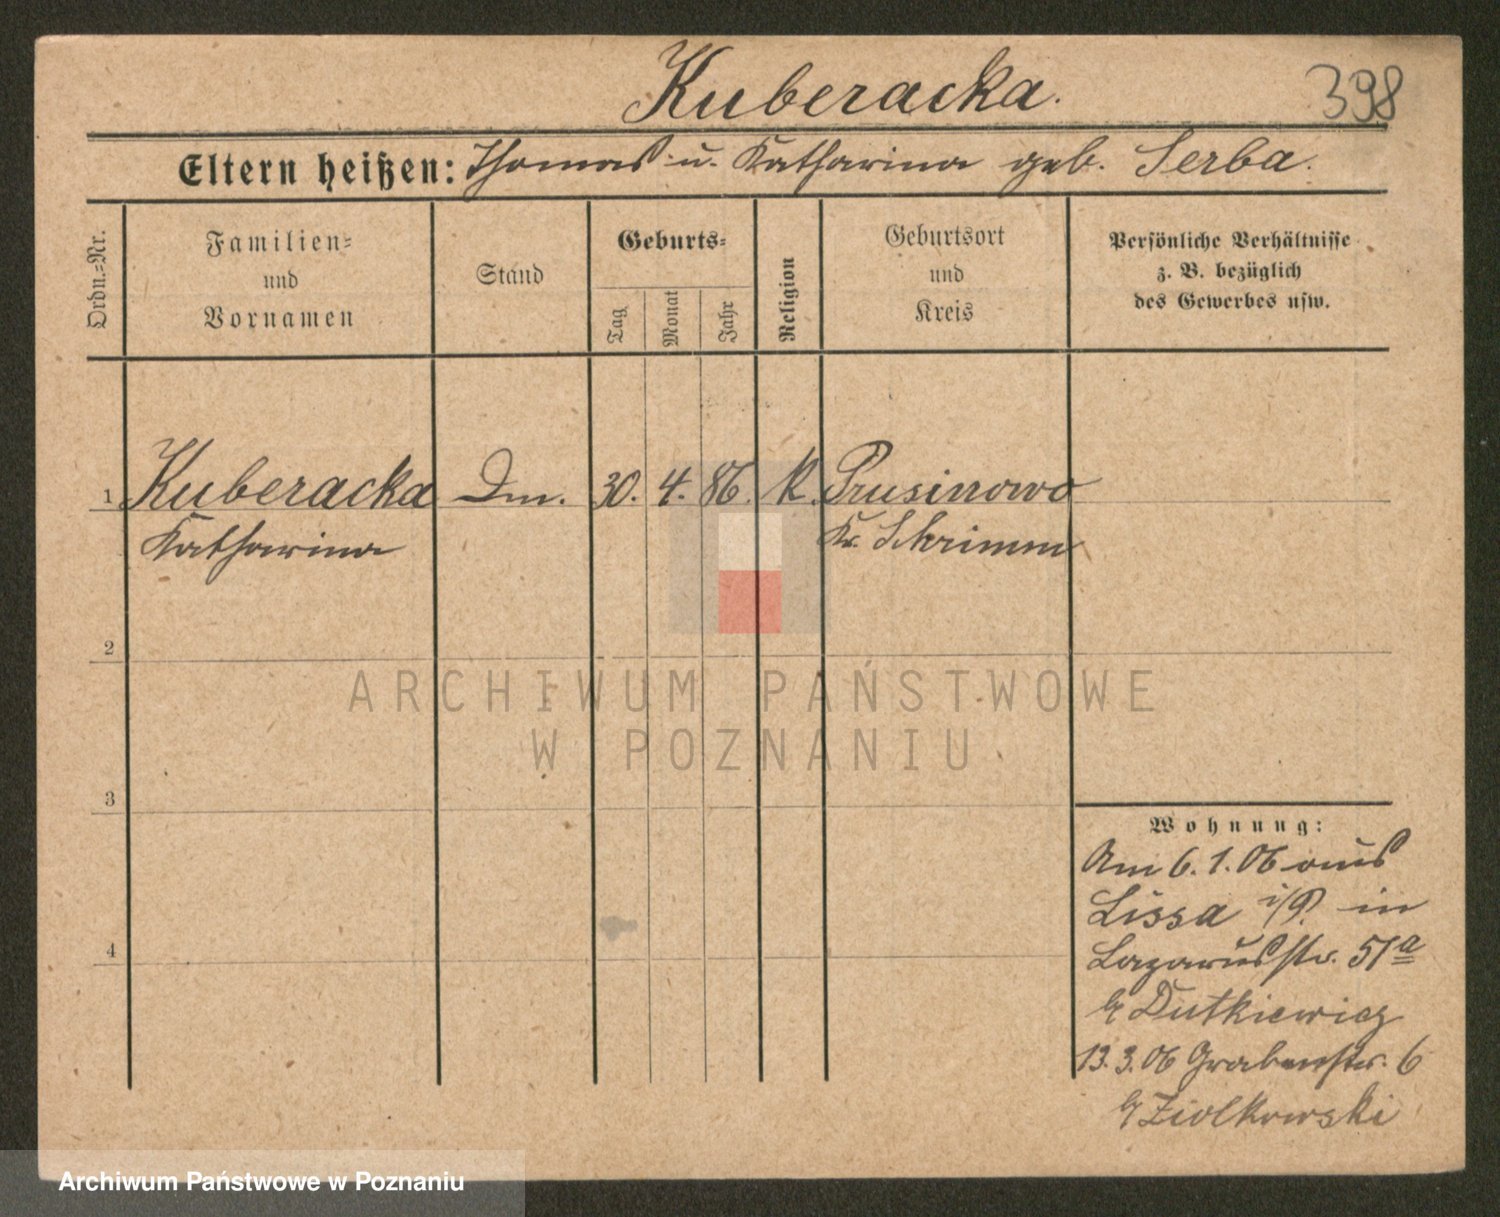 Kuberacka.
398
Eltern heißen: Thomas u. Katharina geb. Serba.
Ordn.=Nr.
Familien=
und
Vornamen
Stand
Geburts=
Tag
Monat
Jahr
Religion
Geburtsort
und
Kreis
Persönliche Verhältnisse
z. B. bezüglich
des Gewerbes usw.
1 Kuberacka Dm. 30. 4. 86. k. Prusinowo
Katharina Kr. Schrimm
2
3
4
Wohnung:
Am 6. 1. 06 aus
Lissa i/P. in
Lazarusstr. 51a
b/ Dutkiewicz
13. 3. 06 Grabenstr. 6
b/ Ziolkowski
ARCHIWUM PAŃSTWOWE
W POZNANIU
Archiwum Państwowe w Poznaniu